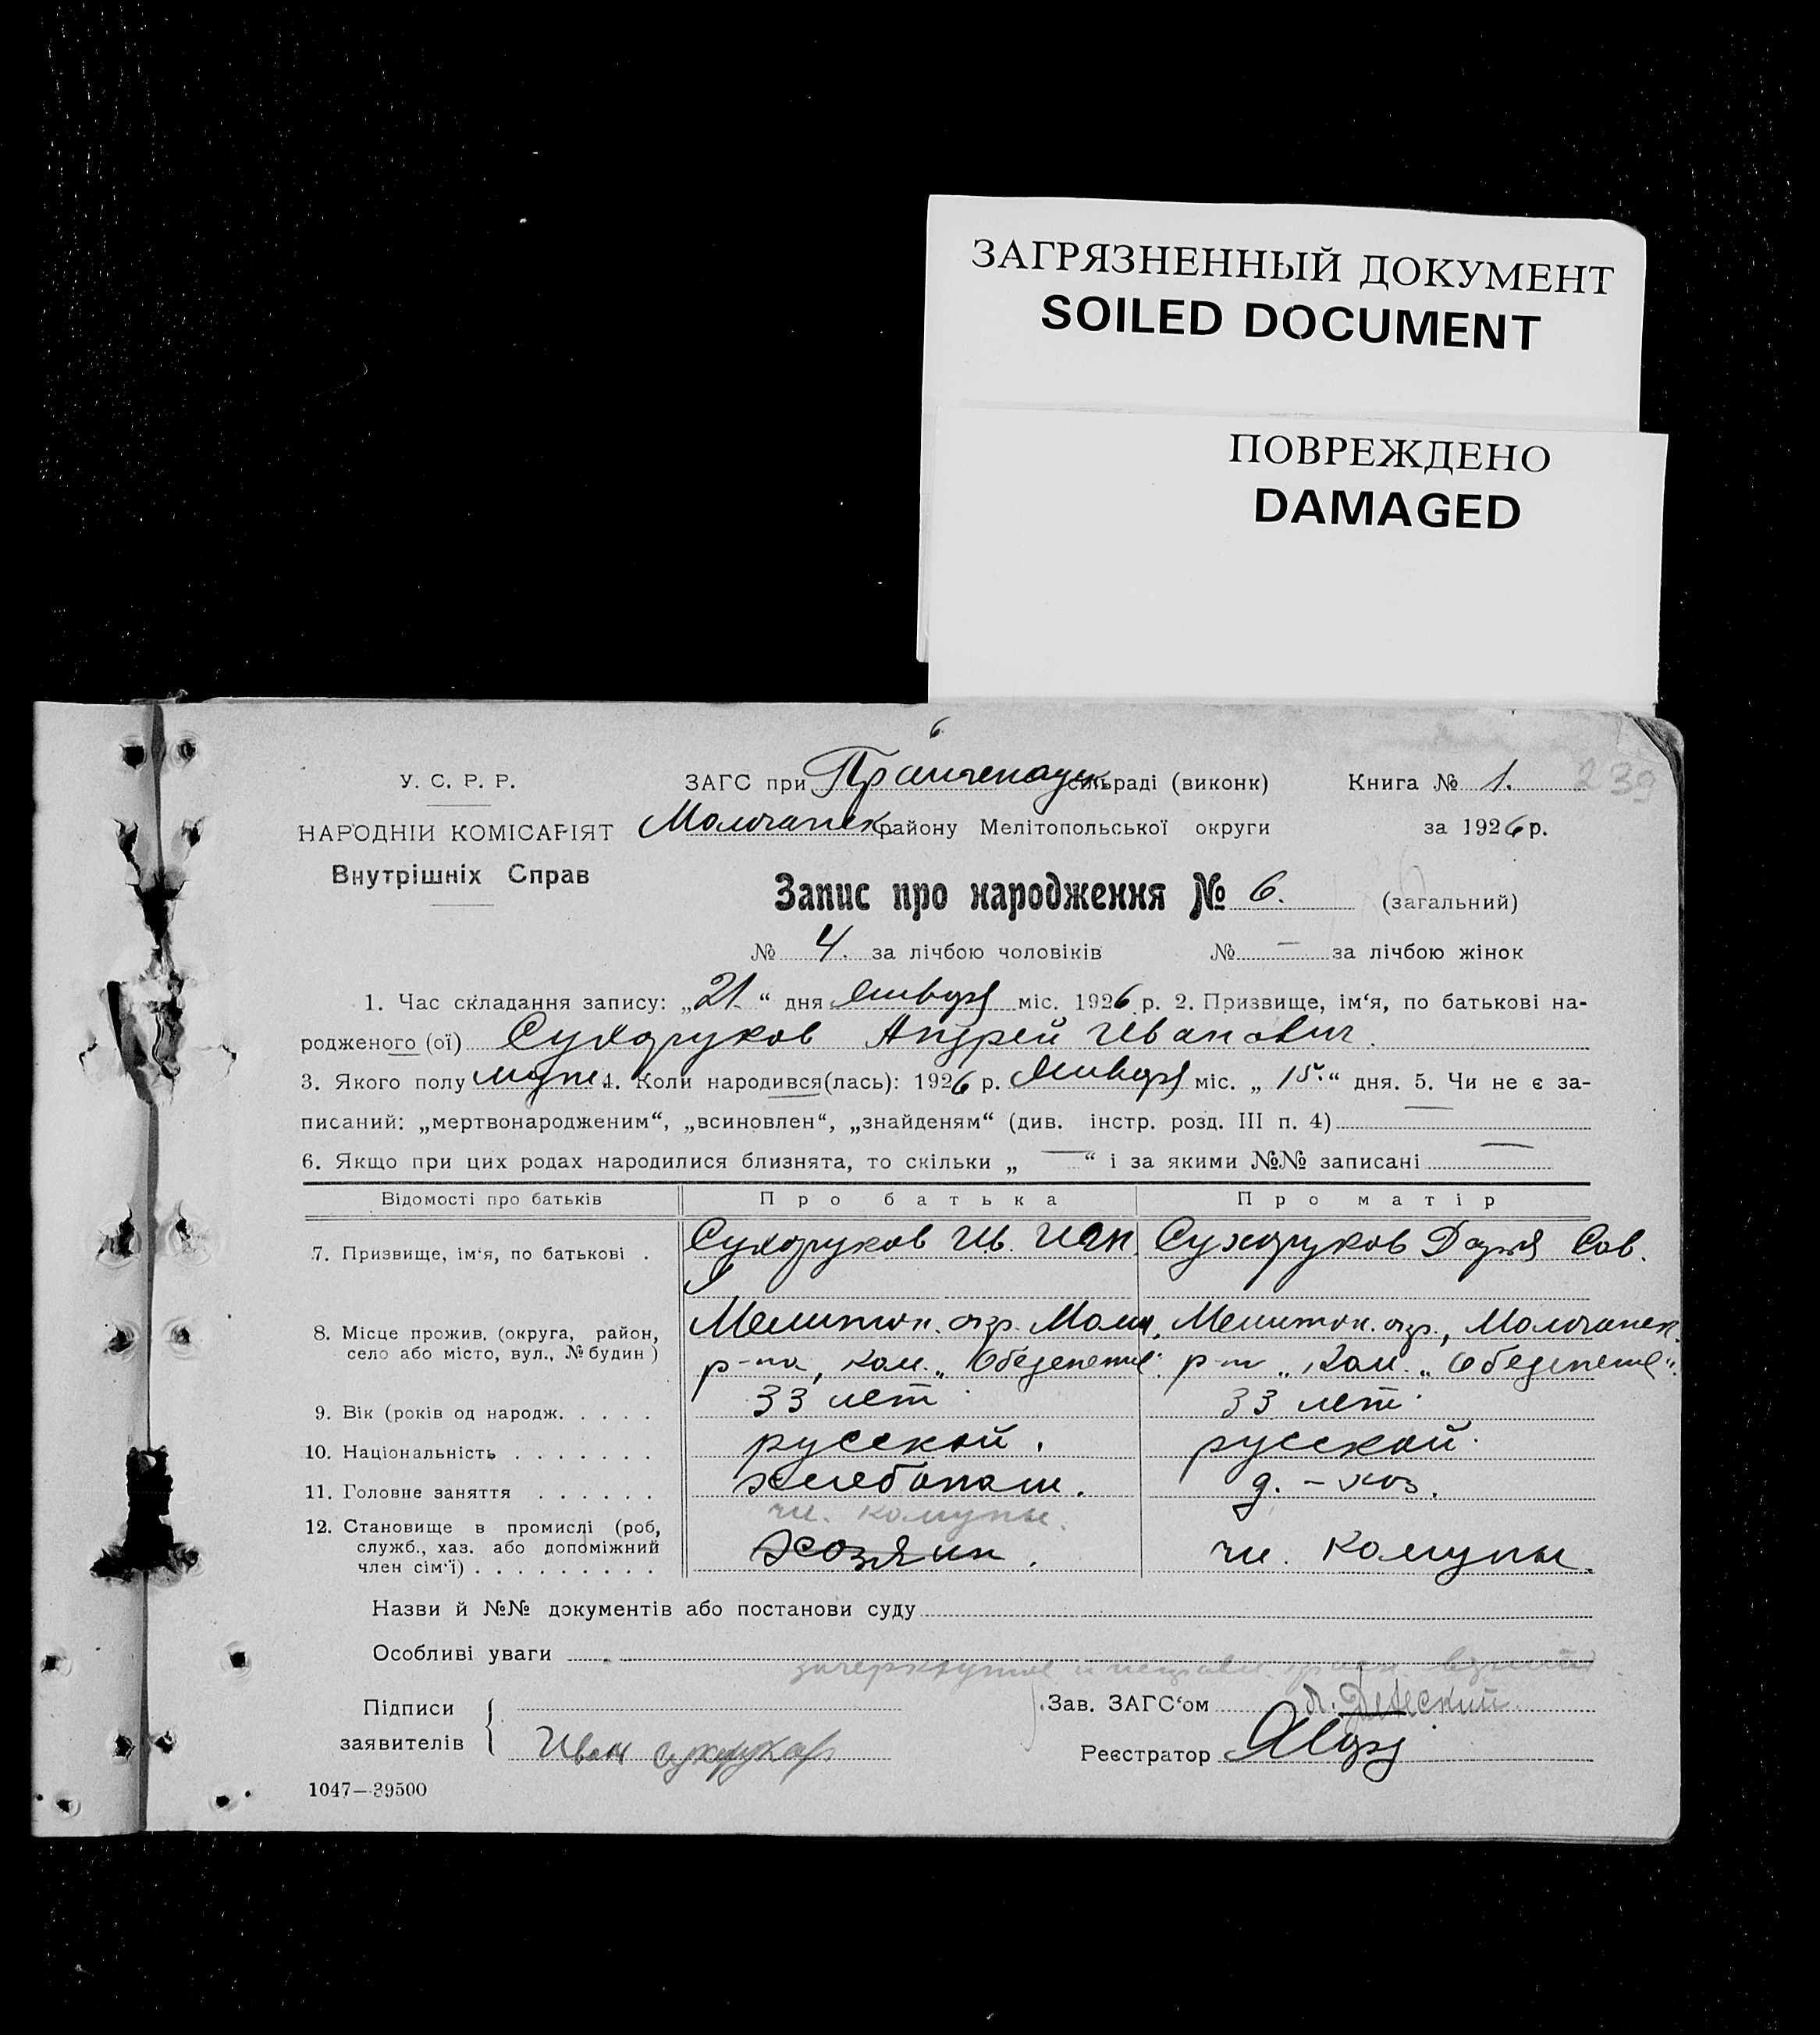 ЗАГРЯЗНЕННЫЙ ДОКУМЕНТ
SOILED DOCUMENT
ПОВРЕЖДЕНО
DAMAGED
6
У. С. Р. Р. ЗАГС при сільраді (виконк) Книга № 1. 239
НАРОДНІЙ КОМІСАРІЯТ Молочанск району Мелітопольської округи за 1926 р.
Внутрішніх Справ
Запис про народження № 6. (загальний)
№ 4. за лічбою чоловіків № — за лічбою жінок
1. Час складання запису: „21“ дня января міс. 1926 р. 2. Призвище, ім‘я, по батькові на-
родженого (ої) Сухоруков Андрей Иванович.
3. Якого полу муж. 4. Коли народився(лась): 1926 р. января міс. „15.“ дня. 5. Чи не є за-
писаний: „мертвонародженим“, „всиновлен“, „знайденям“ (див. інстр. розд. III п. 4) —
6. Якщо при цих родах народилися близнята, то скільки „ — “ і за якими №№ записані —
Відомості про батьків Про батька Про матір
7. Призвище, ім‘я, по батькові . Сухоруков Ив. Сухоруков Дарья Сав.
8. Місце прожив. (округа, район, Мелитоп. окр. Молоч. Мелитоп. окр., Молочанск.
село або місто, вул., № будин ) р-на, ком. р-на ком.
9. Вік (років од народж. . . . . 33 лет 33 лет
10. Національність . . . . . . . русской. русской.
11. Головне заняття . . . . . . хлебопаш. д. - хоз.
чл. комуны.
12. Становище в промислі (роб, хозяин. чл. комуны.
служб., хаз. або допоміжний
член сім‘ї) . . . . . . . . .
Назви й №№ документів або постанови суду
Особливі уваги
зачеркнутое
Підписи Зав. ЗАГС‘ом
заявителів Иван Сухоруков Реєстратор
1047—39500